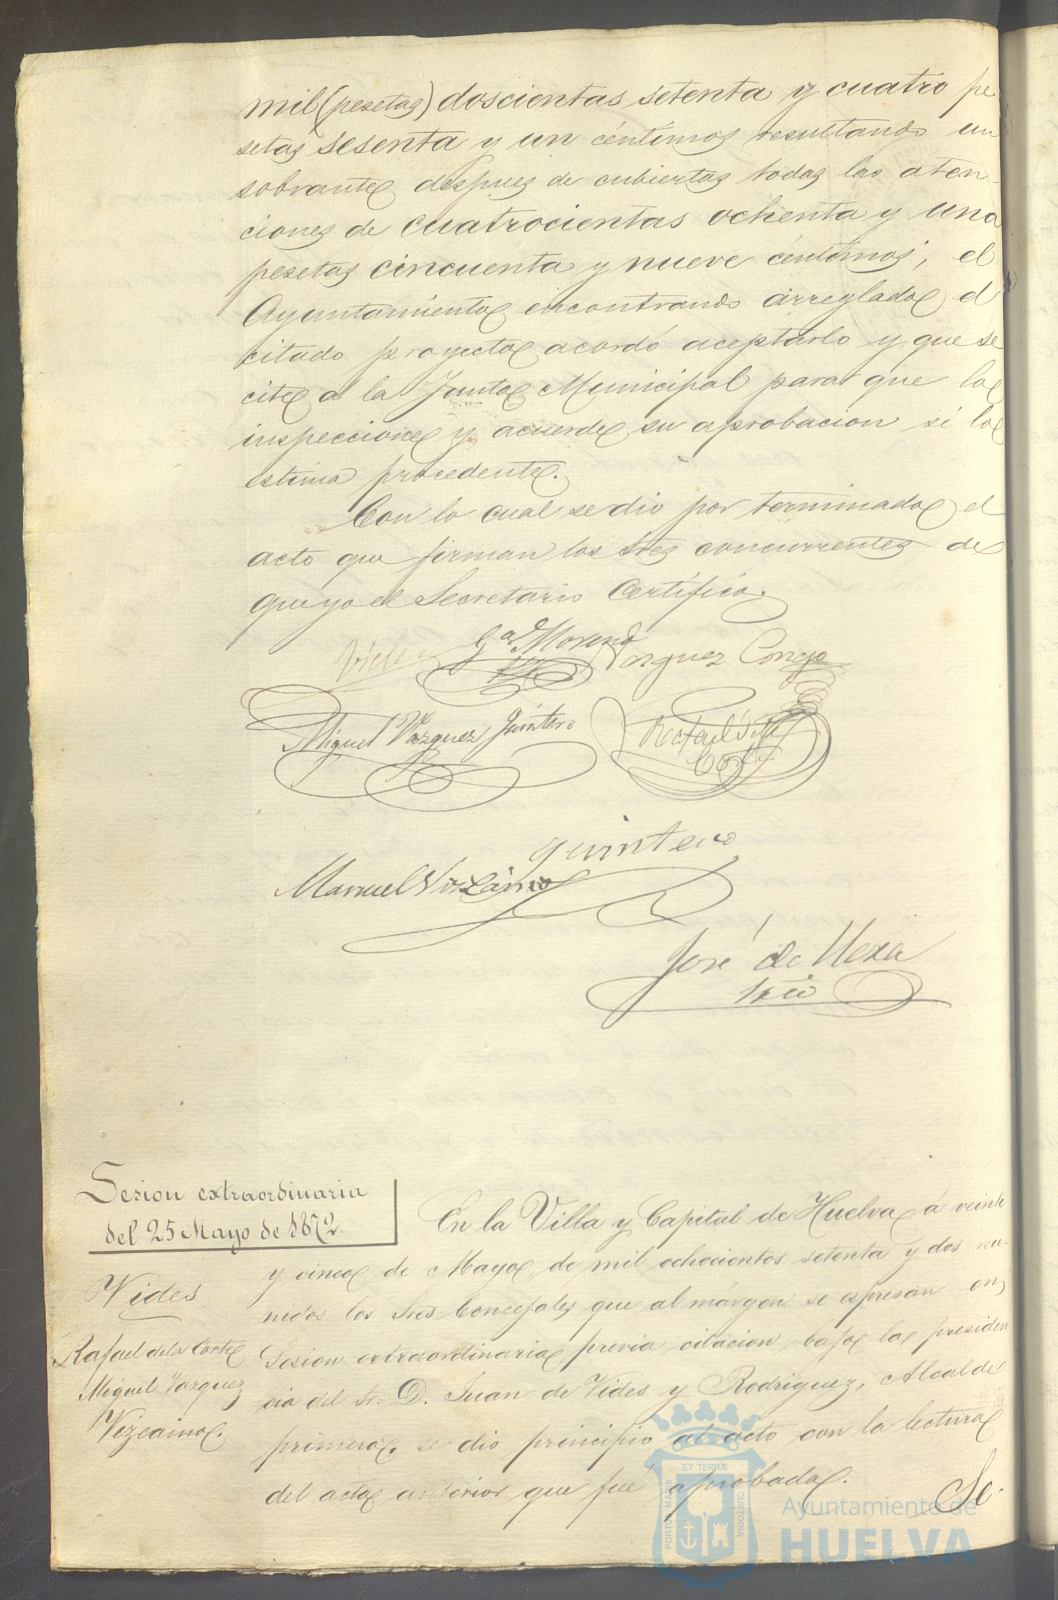 mil (pesetas) doscientas setenta y cuatro pe
setas sesenta y un céntimos resultando un
sobrante despues de cubiertas todas las aten-
ciones de cuatrocientas ochenta y una
pesetas cincuenta y nueve céntimos; el
Ayuntamiento encontrando arreglado el
citado proyecto acordó aceptarlo y que se
cite a la Junta Municipal para que lo
inspeccione y acuerde su aprobacion si lo
estima procedente.
Con lo cual se dio por terminado el
acto que firman los Sres concurrentes de
que yo el Secretario Certifico.
Vides Gª de Moreno Vazquez Conejo
Miguel Vazquez Quintero Rafael de la Corte
Quintero
Manuel Vizcaino
José de Mexa
Srio
Sesion extraordinaria
del 25 Mayo de 1872.
Vides
Rafael de la Corte
Miguel Vazquez
Vizcaino.
En la Villa y Capital de Huelva á veinte
y cinco de Mayo de mil ochocientos setenta y dos reu-
nidos los Sres Concejales que al márgen se espresan en
Sesion extraordinaria previa citacion bajo la presiden
cia del Sr. D. Juan de Vides y Rodriguez, Alcalde
primero, se dio principio al acto con la lectura
del acta anterior que fué aprobada.
Se
PORTUS MARIS ET TERRÆ CUSTODIA
Ayuntamiento de
HUELVA